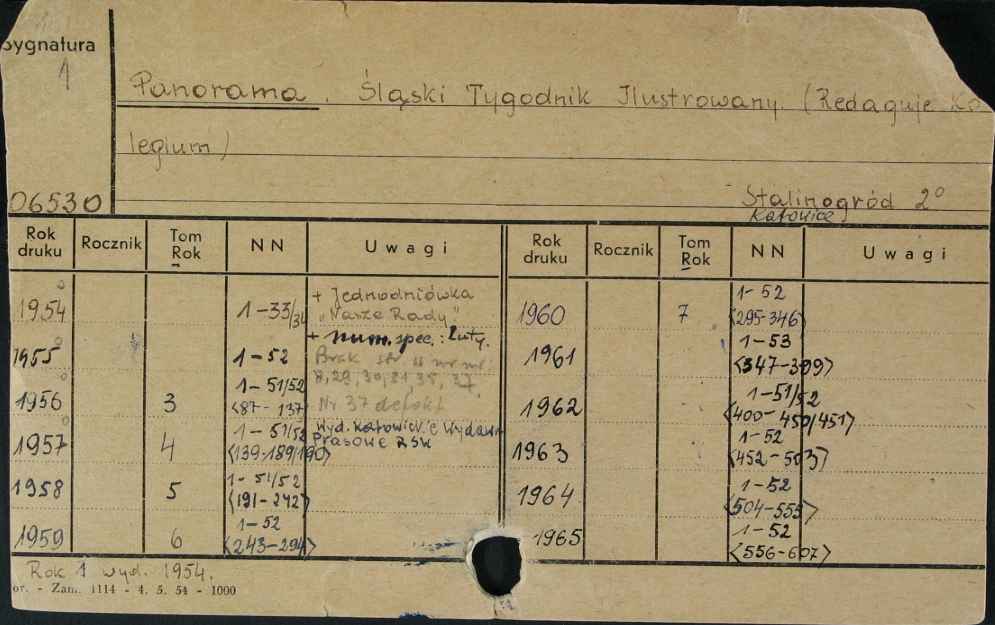 Sygnatura
1
Panorama. Śląski Tygodnik Ilustrowany. (Redaguje Ko
legium)
06530
Stalinogród 2°
Katowice
Rok druku Rocznik Tom Rok NN Uwagi Rok druku Rocznik Tom Rok NN Uwagi
1954 1-33/34 + Jednodniówka „Nasze Rady."
+ num. spec.: Luty.
1955 1-52 Brak str. w nr nr. 8, 29, 30, 31, 35, 37
1956 3 1-51/52 <87-137> Nr 37 defekt
1957 4 1-51/52 <139-189/190> Wyd. Katowick. Wydawn Prasowe RSW
1958 5 1-51/52 <191-242>
1959 6 1-52 <243-294>
1960 7 1-52 <295-346>
1961 1-53 <347-399>
1962 1-51/52 <400-450/451>
1963 1-52 <452-503>
1964 1-52 <504-555>
1965 1-52 <556-607>
Rok 1 wyd. 1954.
or. - Zam. 1114 - 4. 5. 54 - 1000